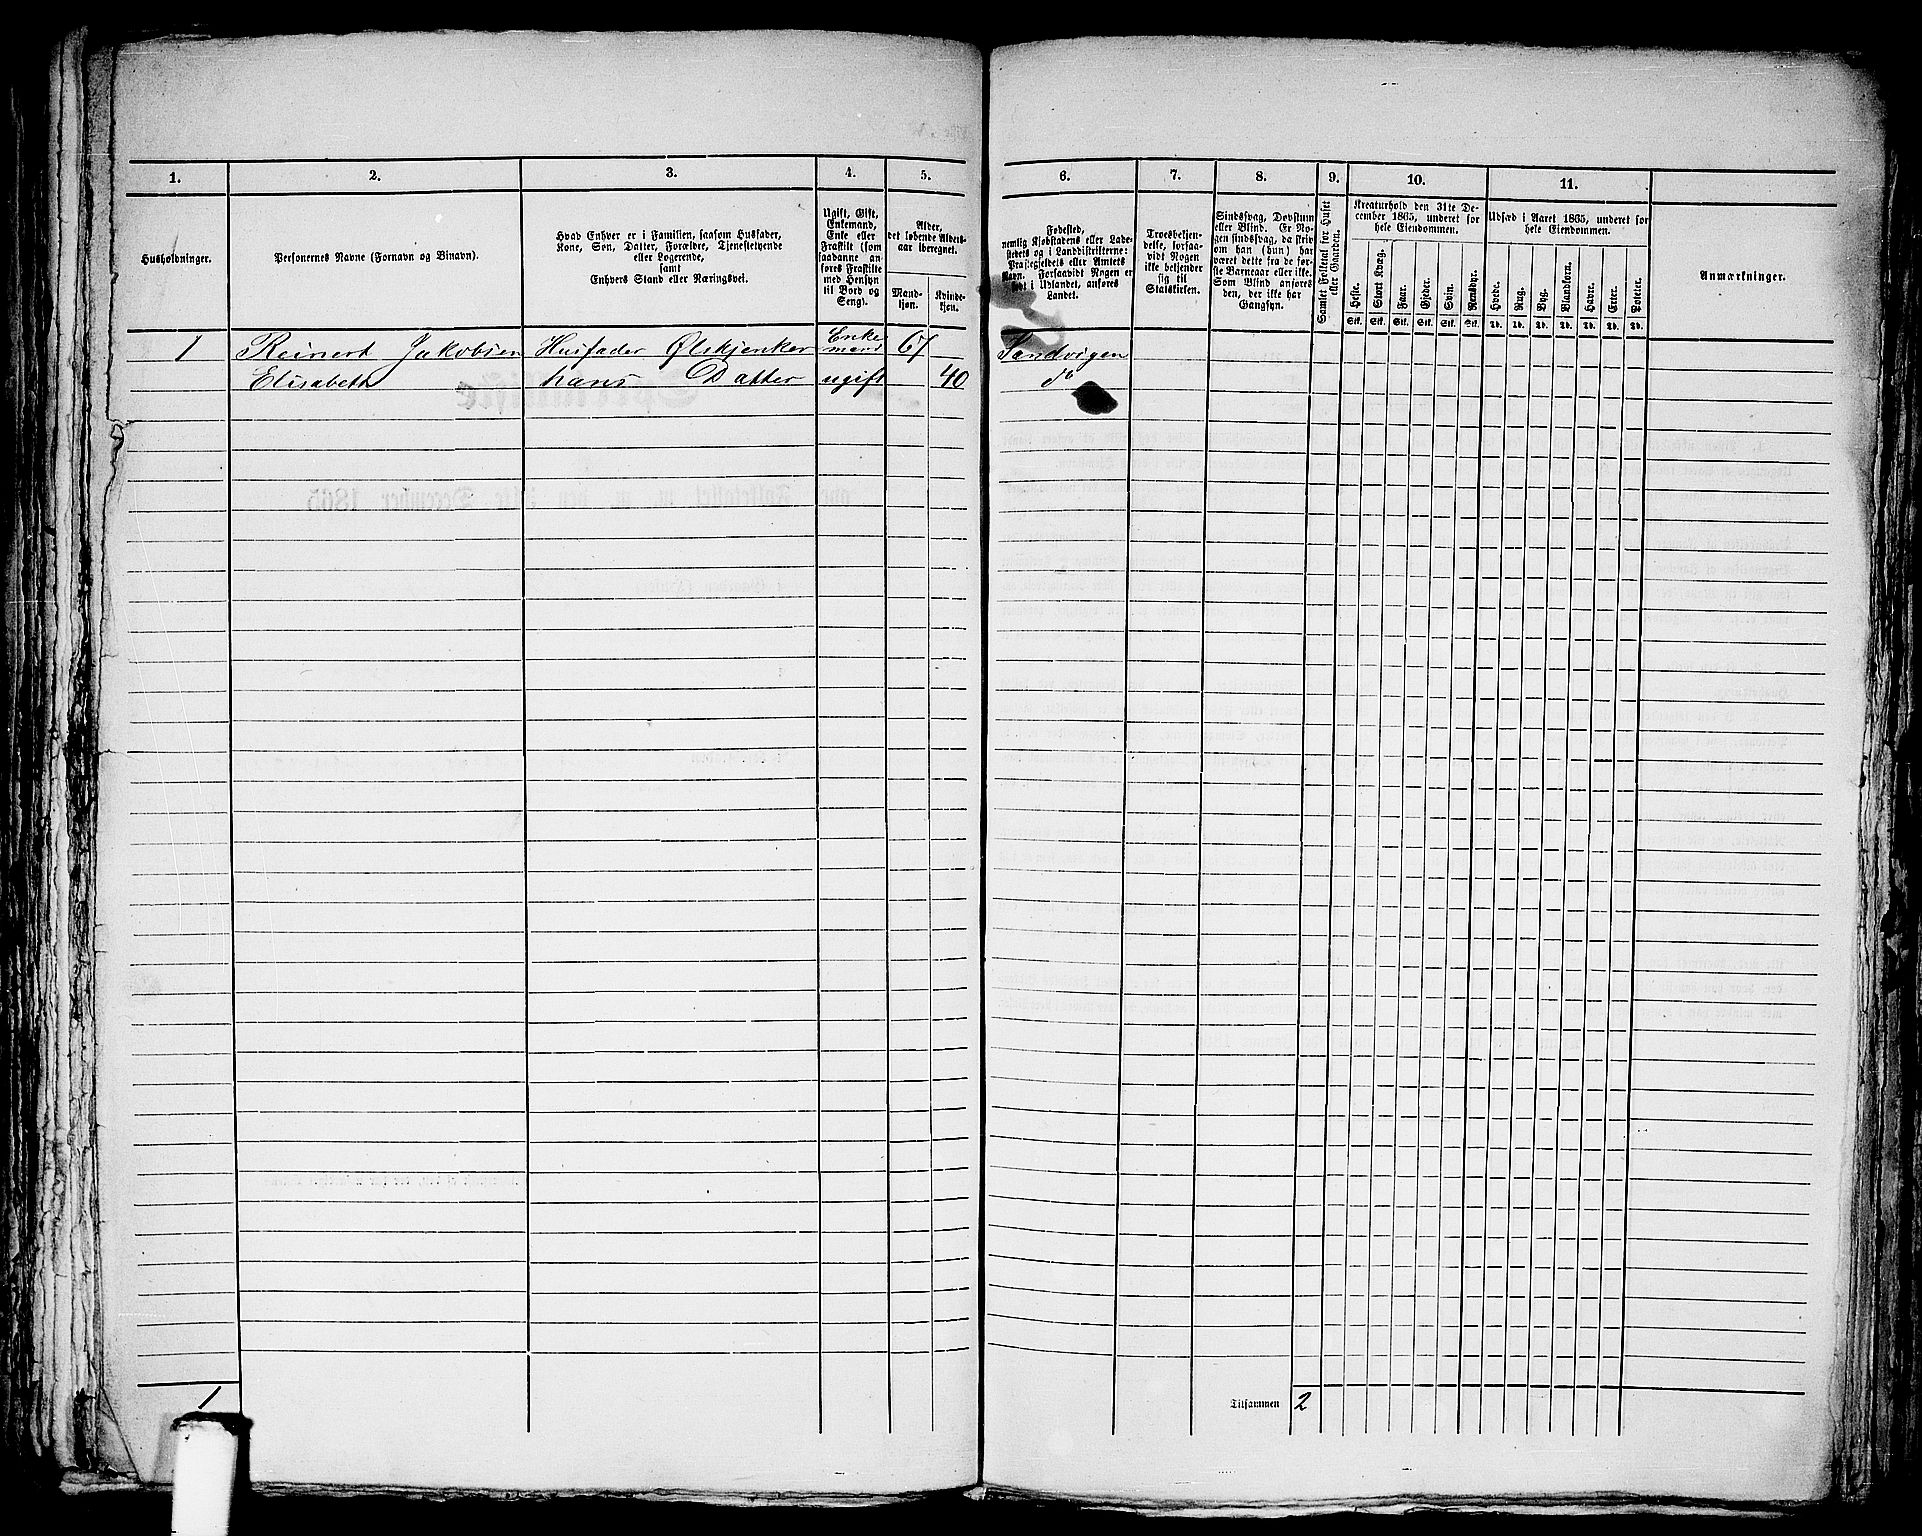 1.
2.
3.
4.
5.
6.
7.
8.
9.
10.
11.
Husholdninger.
Personernes Navne (Fornavn og Binavn).
Hvad Enhver er i Familien, saasom Husfader,
Kone, Søn, Datter, Forældre, Tjenestetyende
eller Logerende,
samt
Enhvers Stand eller Næringsvei.
Ugift, Gift,
Enkemand,
Enke eller
Fraskilt (som
saadanne an-
føres Fraskilte
med Hensyn
til Bord og
Seng).
Alder,
det løbende Alders-
aar iberegnet.
Mand-
kjøn.
Kvinde-
kjøn.
Fødested,
nemlig Kjøbstadens eller Lade-
stedets og i Landdistrikterne:
Præstegjeldets eller Amtets
Navn. Forsaavidt Nogen er
født i Udlandet, anføres
Landet.
Troesbekjen-
delse, forsaa-
vidt Nogen
ikke bekjender
sig til
Statskirken.
Sindssvag, Døvstum
eller Blind. Er No-
gen sindssvag, da skriv
om han (hun) har
været dette fra de før-
ste Barneaar eller ikke.
Som Blind anføres
den, der ikke har
Gangsyn.
Samlet Folketal for Huset
eller Gaarden.
Kreaturhold den 31te De-
cember 1865, underet for
hele Eiendommen.
Heste.
Stort Kvæg.
Faar.
Gjeder.
Svin.
Rensdyr.
Stk. Stk. Stk. Stk. Stk. Stk.
Udsæd i Aaret 1865, underet for
hele Eiendommen.
Hvede.
Rug.
Byg.
Blandkorn.
Havre.
Erter.
Poteter.
Td. Td. Td. Td. Td. Td. Td.
Anmærkninger.
1 Reinert Jakobsen Husfader Ølskjenker Enke mand 67 Sandvigen
Elisabeth hans Datter ugift 40 do
1
Tilsammen 2